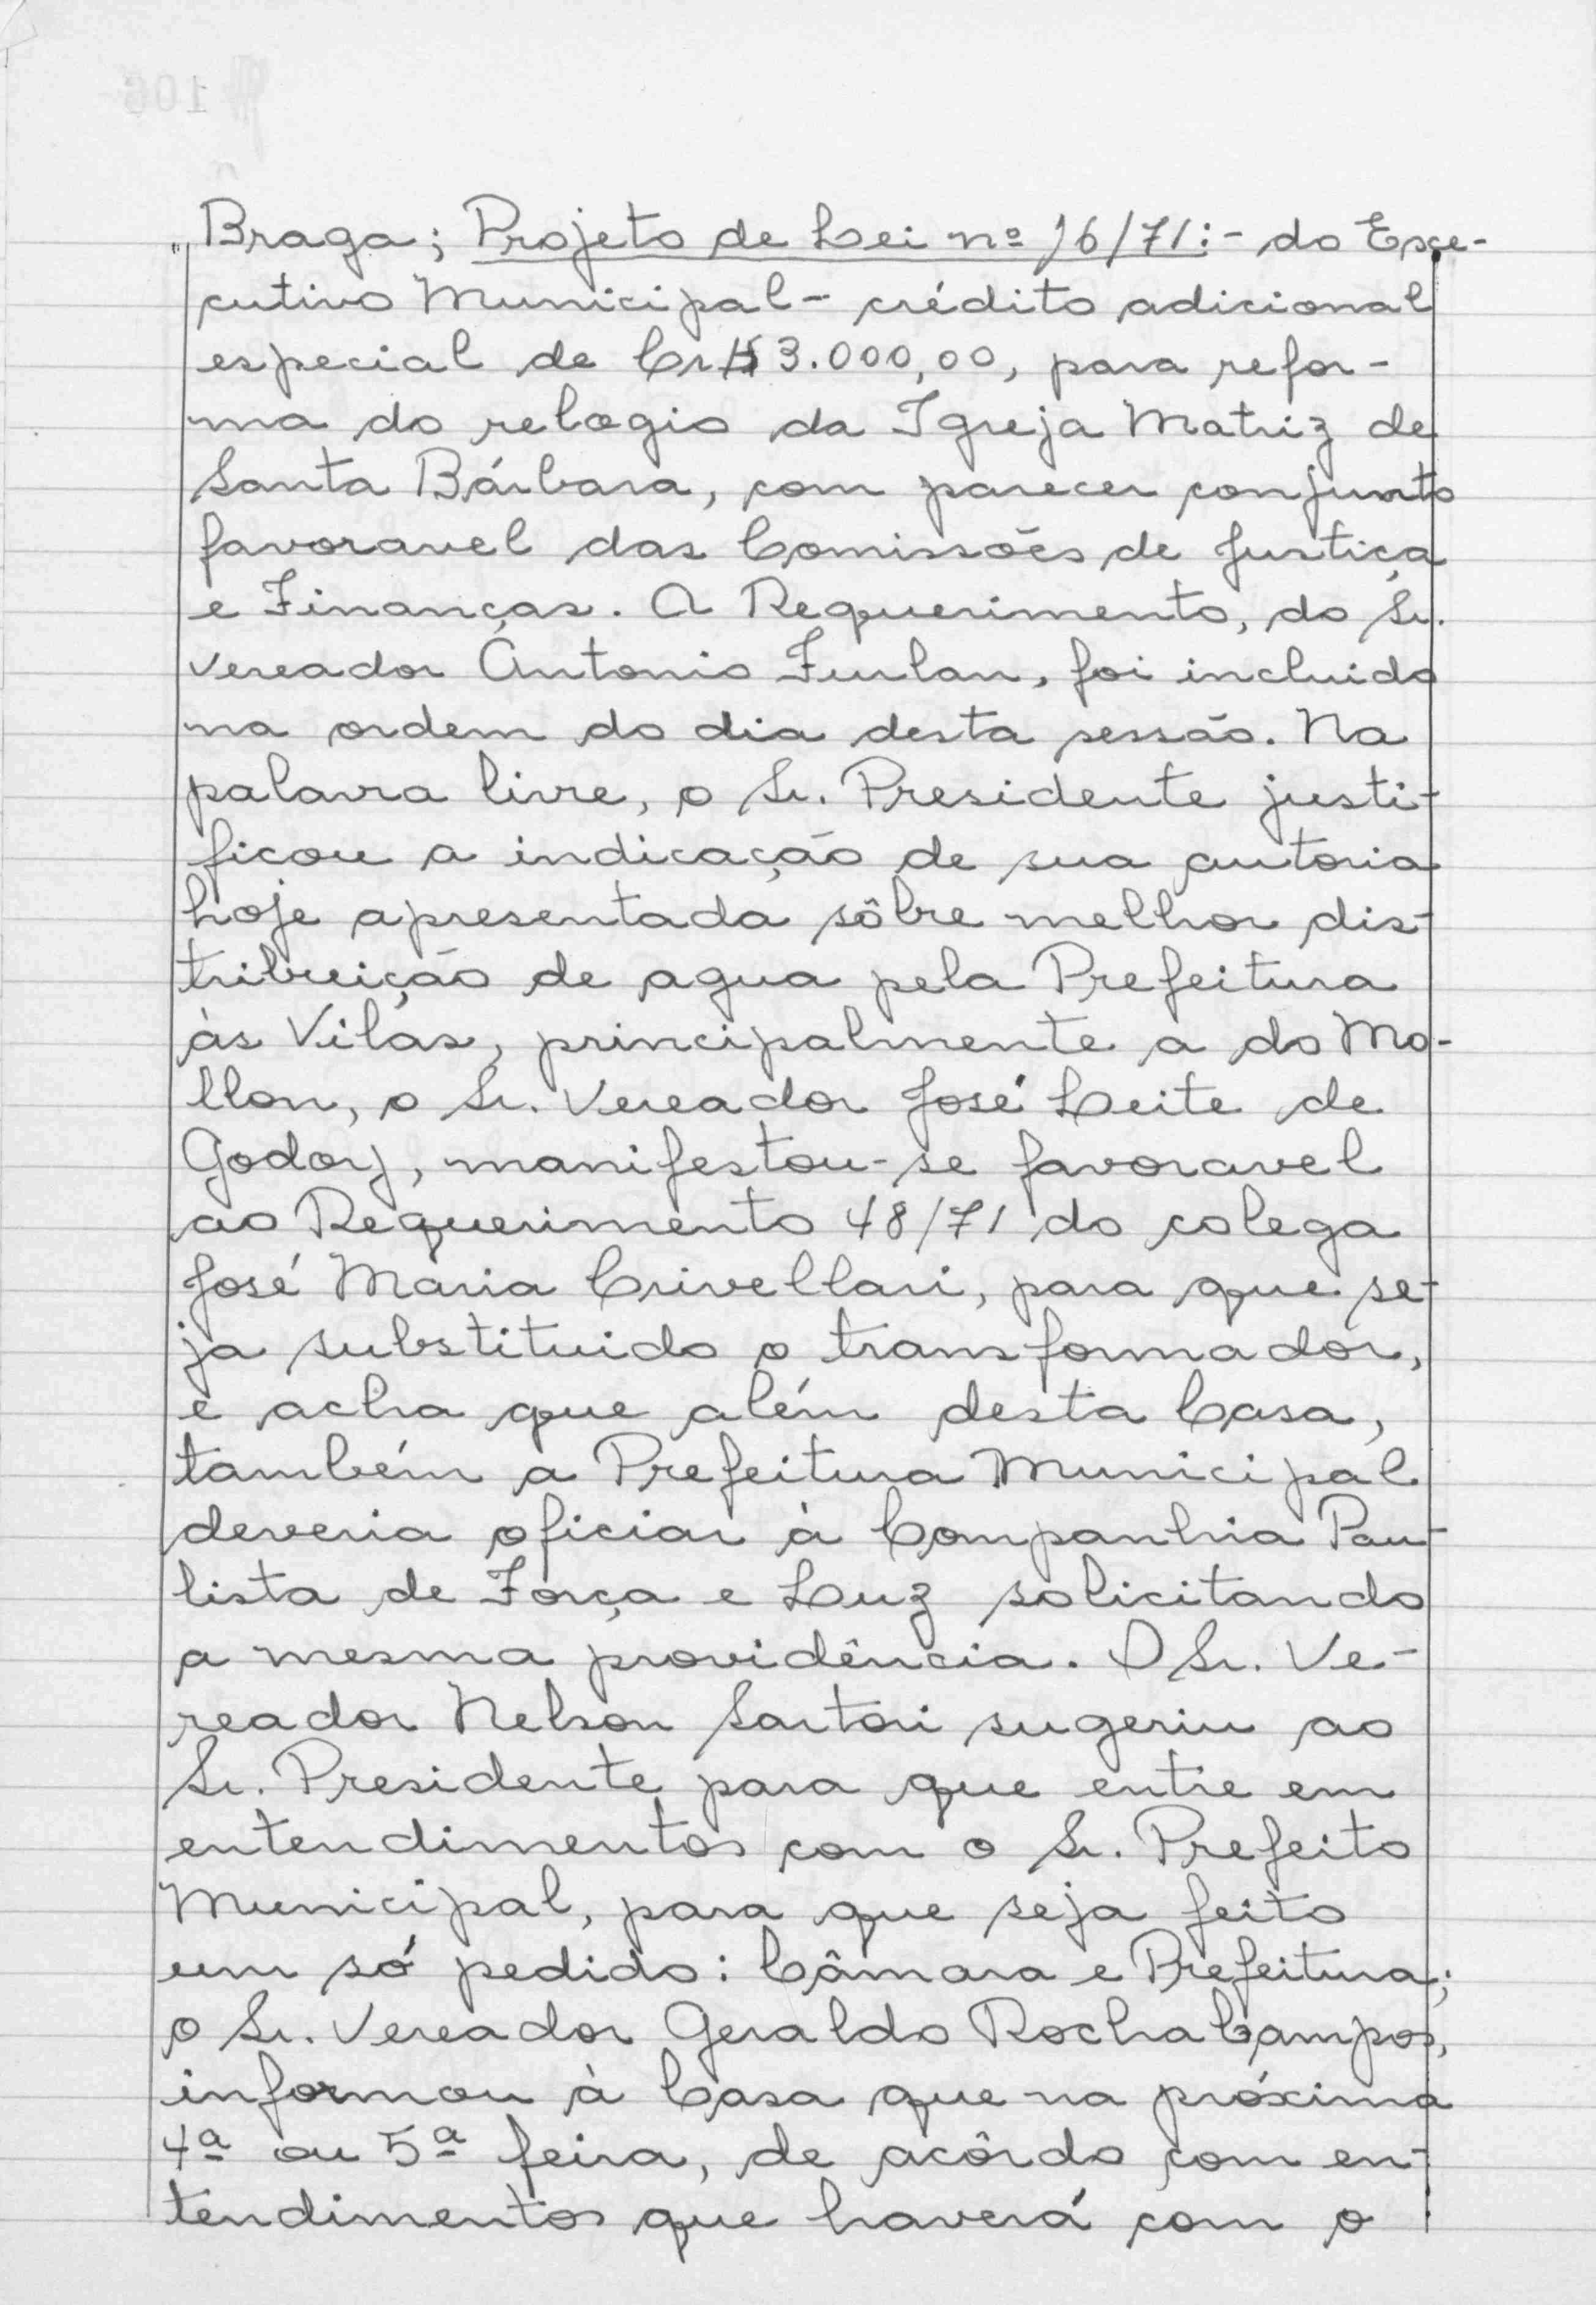 Braga; Projeto de Lei nº 16/71:- do Exe-
cutivo Municipal - crédito adicional
especial de Cr$ 3.000,00, para refor-
ma do relogio da Igreja Matriz de
Santa Bárbara, com parecer conjunto
favoravel das Comissões de Justiça
e Finanças. A Requerimento, do Sr.
Vereador Antonio Furlan, foi incluido
na ordem do dia desta sessão. Na
palavra livre, o Sr. Presidente justi-
ficou a indicação de sua autoria
hoje apresentada sôbre melhor dis-
tribuição de agua pela Prefeitura
às Vilas, principalmente a do Mo-
llon, o Sr. Vereador José Leite de
Godoy, manifestou-se favoravel
ao Requerimento 48/71 do colega
José Maria Crivellari, para que se-
ja substituido o transformador,
e acha que além desta Casa,
também a Prefeitura Municipal
deveria oficiar à Companhia Pau-
lista de Força e Luz solicitando
a mesma providência. O Sr. Ve-
reador Nelson Sartori sugeriu ao
Sr. Presidente para que entre em
entendimentos com o Sr. Prefeito
Municipal, para que seja feito
um só pedido: Câmara e Prefeitura;
o Sr. Vereador Geraldo Rocha Campos,
informou à Casa que na próxima
4ª ou 5ª feira, de acôrdo com en-
tendimentos que haverá com o